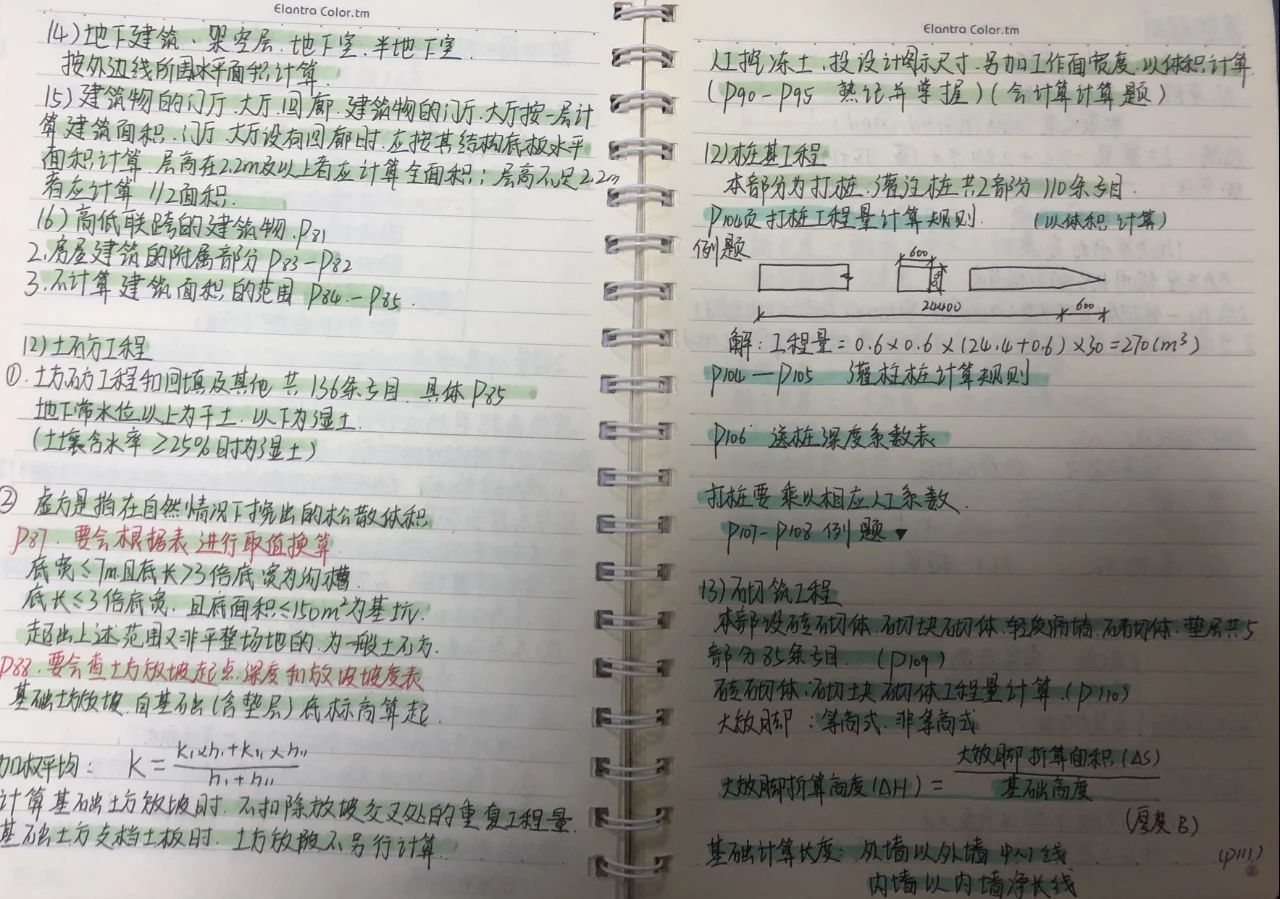 Elantra Color.tm
14)地下建筑、架空层.地下室.半地下室.
按外边线所围水平面积计算.
15)建筑物的门厅.大厅.回廊.建筑物的门厅.大厅按一层计
算建筑面积.门厅.大厅设有回廊时.应按其结构底板水平
面积计算.层高在2.2m及以上者应计算全面积;层高不足2.2m
者应计算1/2面积.
16)高低联跨的建筑物.P81
2.房屋建筑的附属部分P83-P82
3.不计算建筑面积的范围 P84.-P85.
12)土石方工程
①.土方石方工程和回填及其他 共136条子目.具体P85
地下常水位以上为干土.以下为湿土.
(土壤含水率≥25%时为湿土)
② 虚方是指在自然情况下挖出的松散体积.
P87.要会根据表进行取值换算.
底宽≤7m.且底长>3倍底宽为沟槽.
底长≤3倍底宽.且底面积≤150m²为基坑.
超出上述范围又非平整场地的.为一般土石方.
P88.要会查土方放坡起点.深度和放坡坡度表
基础土方放坡.自基础(含垫层)底标高算起.
加权平均: K=(K₁×h₁+K₁₁×h₁₁)/(h₁+h₁₁)
计算基础土方放坡时.不扣除放坡交叉处的重复工程量.
基础土方支挡土板时.土方放坡不另行计算.
Elantra Color.tm
人工挖冻土.按设计图示尺寸.另加工作面宽度.以体积计算.
(P90-P95 熟记并掌握)(会计算计算题)
12)桩基工程
本部分为打桩.灌注桩共2部分110条子目.
P104页打桩工程量计算规则. (以体积计算)
例题
600
24400 600
解:工程量=0.6×0.6×(24.4+0.6)×30=270(m³)
P104—P105 灌注桩计算规则
P106 送桩深度系数表
打桩要乘以相应人工系数.
P107-P108例题▼
13)砌筑工程
本部设砖砌体.砌块砌体.轻质隔墙.石砌体.垫层共5
部分85条子目. (P109)
砖砌体;砌块砌体工程量计算.(P110)
大放脚:等高式.非等高式
大放脚折算高度(ΔH)=大放脚折算面积(ΔS)/基础高度
(厚度B)
基础计算长度:外墙以外墙中心线 (P111)
内墙以内墙净长线